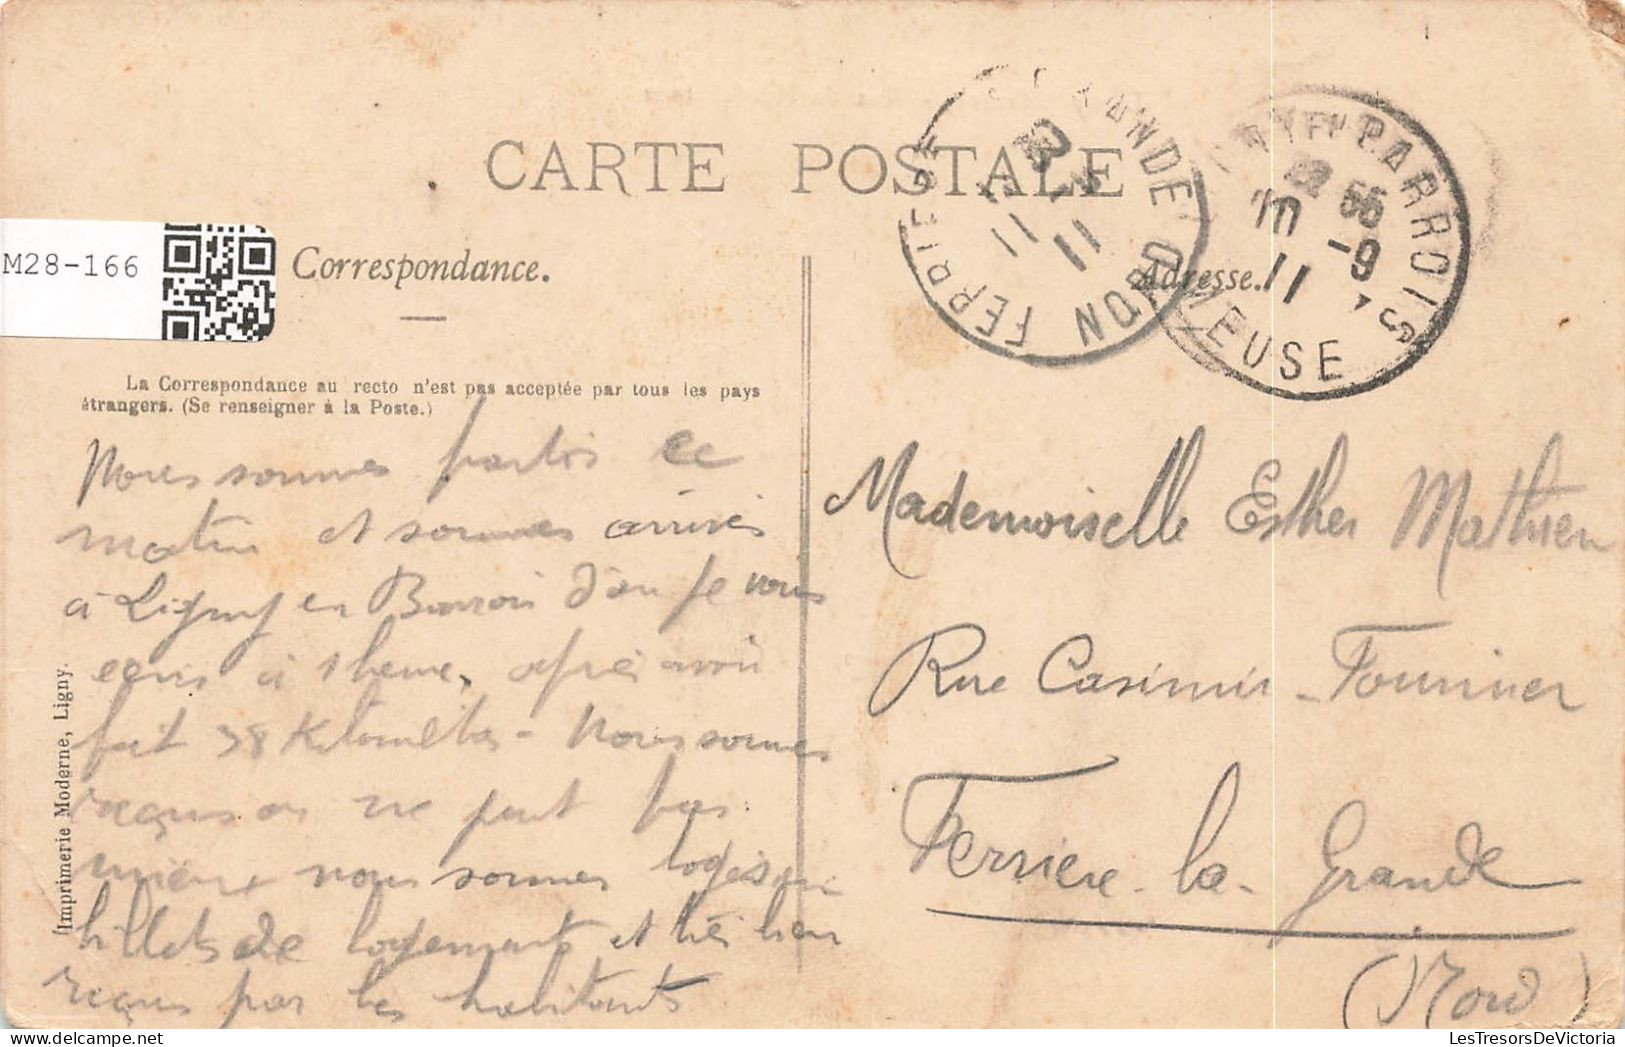 CARTE POSTALE
M28-166
Correspondance.
Adresse.
FERRIERE LA GRANDE NORD
11 11
PARROIS MEUSE
22 55
10 -9
11
La Correspondance au recto n'est pas acceptée par tous les pays
étrangers. (Se renseigner à la Poste.)
Nous sommes partis ce
matin et sommes arrivés
à Ligny en Barrois d'où je vous
écris à 1 heure, après avoir
fait 38 Kilomètres - Nous sommes
reçus on ne peut pas
mieux nous sommes logés par
billets de logements et très bien
reçus par les habitants
Mademoiselle Esther Mathieu
Rue Casimir-Fournier
Ferrière-la-Grande
(Nord)
Imprimerie Moderne, Ligny.
LesTresorsDeVictoria